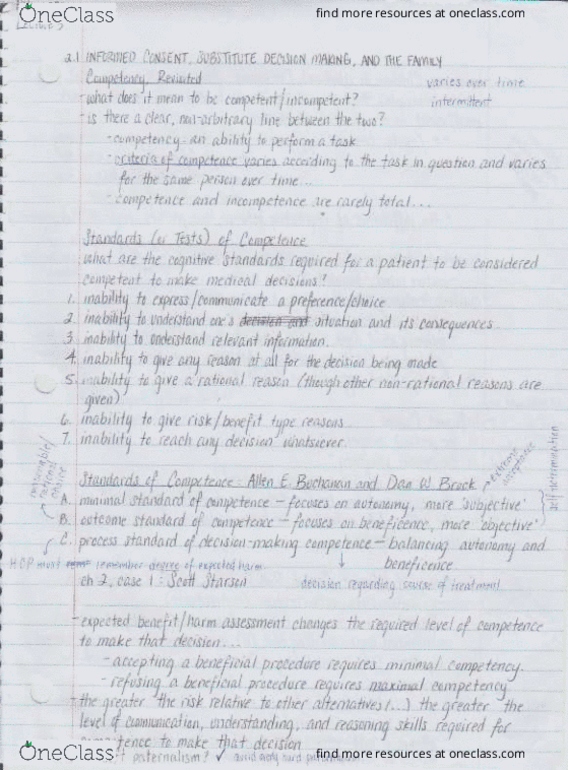 OneClass
find more resources at oneclass.com
2.1 INFORMED CONSENT, SUBSTITUTE DECISION MAKING, AND THE FAMILY
Competency Revisited
varies over time
- what does it mean to be competent/incompetent?
intermittent
- is there a clear, non-arbitrary line between the two?
- competency - an ability to perform a task
- criteria of competence varies according to the task in question and varies
for the same person over time...
- competence and incompetence are rarely total...
Standards (or Tests) of Competence
what are the cognitive standards required for a patient to be considered
competent to make medical decisions?
1. inability to express/communicate a preference/choice
2. inability to understand one's decision and situation and its consequences
3. inability to understand relevant information.
4. inability to give any reason at all for the decision being made
5. inability to give a rational reason (though other non-rational reasons are
given)
6. inability to give risk/benefit type reasons
7. inability to reach any decision whatsoever.
reasonable/
rational
choice
Standards of Competence: Allen E. Buchanan and Dan W. Brock
extreme
acceptance
self determination
A. minimal standard of competence - focuses on autonomy, more 'subjective'
B. outcome standard of competence - focuses on beneficence, more 'objective'
C. process standard of decision-making competence - balancing autonomy and
beneficence
HCP must remember degree of expected harm
ch 2, case 1: Scott Starson
decision regarding course of treatment
- expected benefit/harm assessment changes the required level of competence
to make that decision...
- accepting a beneficial procedure requires minimal competency.
- refusing a beneficial procedure requires maximal competency
- the greater the risk relative to other alternatives (...) the greater the
level of communication, understanding, and reasoning skills required for
competence to make that decision
paternalism? ✓ avoid
OneClass
find more resources at oneclass.com